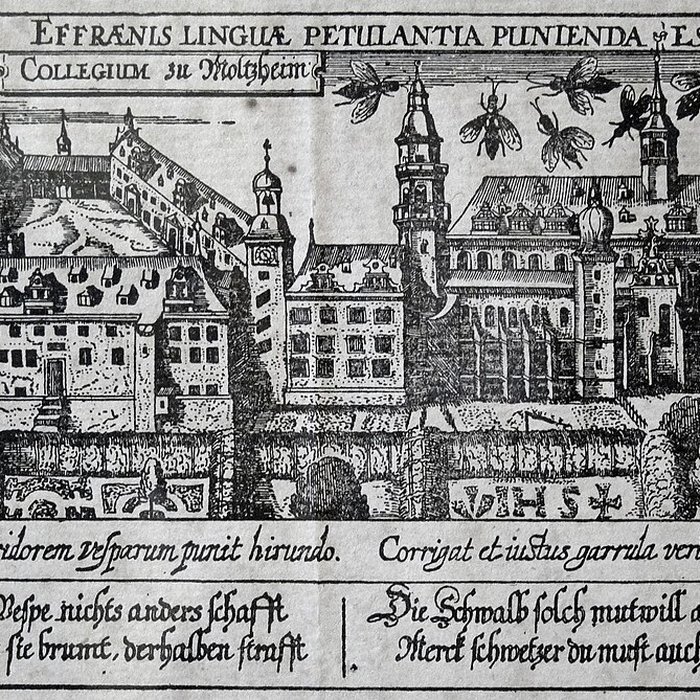 EFFRÆNIS LINGUÆ PETULANTIA PUNIENDA ES
COLLEGIUM zu Moltzheim
VIHS
ridorem vesparum punit hirundo. Corrigat et iustus garrula ven
Vespe nichts anders schafft
sie brumt, derhalben strafft
Die Schwalb solch mutwill a
Merck schwetzer du must auch